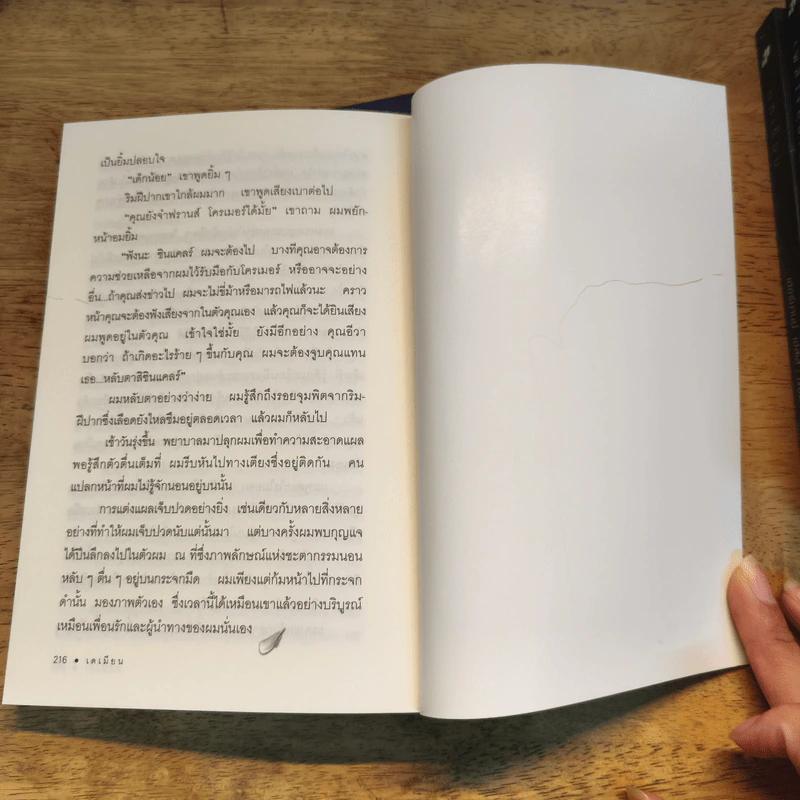 เป็นยิ้มปลอบใจ
“เด็กน้อย” เขาพูดยิ้ม ๆ
ริมฝีปากเขาใกล้ผมมาก เขาพูดเสียงเบาต่อไป
“คุณยังจำฟรานส์ โครเมอร์ได้มั้ย” เขาถาม ผมพยัก-
หน้าอมยิ้ม
“ฟังนะ ซินแคลร์ ผมจะต้องไป บางทีคุณอาจต้องการ
ความช่วยเหลือจากผมไว้รับมือกับโครเมอร์ หรืออาจจะอย่าง
อื่น...ถ้าคุณส่งข่าวไป ผมจะไม่ขี่ม้าหรือมารถไฟแล้วนะ คราว
หน้าคุณจะต้องฟังเสียงจากในตัวคุณเอง แล้วคุณก็จะได้ยินเสียง
ผมพูดอยู่ในตัวคุณ เข้าใจใช่มั้ย ยังมีอีกอย่าง คุณอีวา
บอกว่า ถ้าเกิดอะไรร้าย ๆ ขึ้นกับคุณ ผมจะต้องจูบคุณแทน
เธอ...หลับตาสิซินแคลร์”
ผมหลับตาอย่างว่าง่าย ผมรู้สึกถึงรอยจุมพิตจากริม-
ฝีปากซึ่งเลือดยังไหลซึมอยู่ตลอดเวลา แล้วผมก็หลับไป
เช้าวันรุ่งขึ้น พยาบาลมาปลุกผมเพื่อทำความสะอาดแผล
พอรู้สึกตัวตื่นเต็มที่ ผมรีบหันไปทางเตียงซึ่งอยู่ติดกัน คน
แปลกหน้าที่ผมไม่รู้จักนอนอยู่บนนั้น
การแต่งแผลเจ็บปวดอย่างยิ่ง เช่นเดียวกับหลายสิ่งหลาย
อย่างที่ทำให้ผมเจ็บปวดนับแต่นั้นมา แต่บางครั้งผมพบกุญแจ
ได้ปีนลึกลงไปในตัวผม ณ ที่ซึ่งภาพลักษณ์แห่งชะตากรรมนอน
หลับ ๆ ตื่น ๆ อยู่บนกระจกมืด ผมเพียงแต่ก้มหน้าไปที่กระจก
ดำนั้น มองภาพตัวเอง ซึ่งเวลานี้ได้เหมือนเขาแล้วอย่างบริบูรณ์
เหมือนเพื่อนรักและผู้นำทางของผมนั่นเอง
216 • เดเมียน